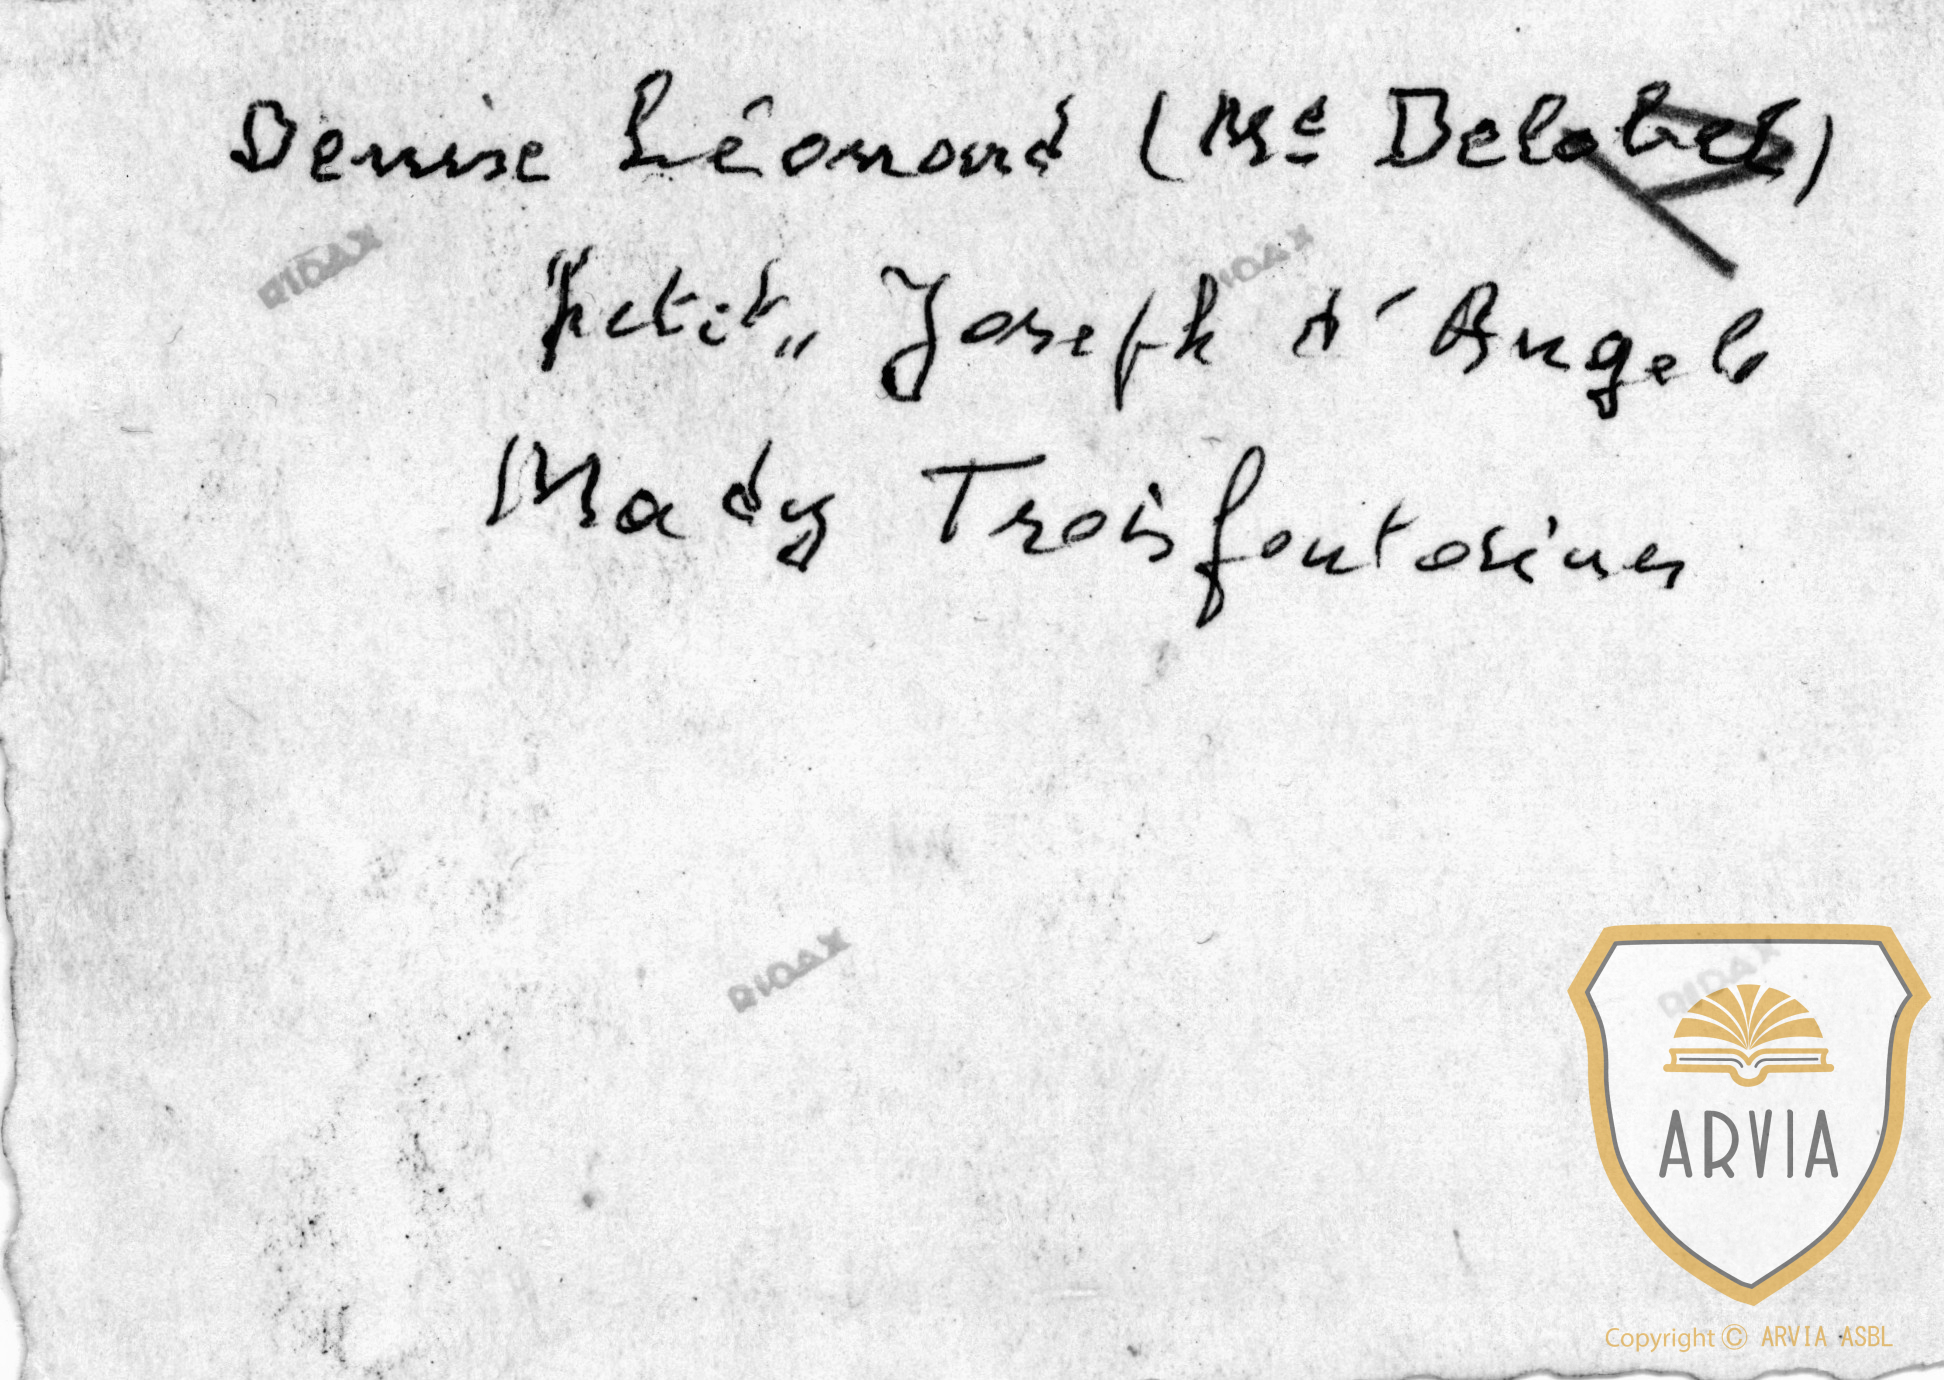 Denise Léonard (Me Delobel)
"petit" Joseph d'Angelo
Mady Troisfontaines
RIDAX
RIDAX
RIDAX
RIDAX
ARVIA
Copyright © ARVIA ASBL